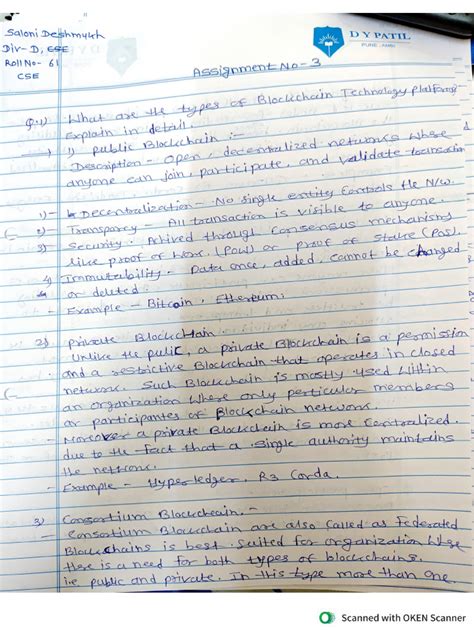 Saloni Deshmukh
Div- D, CSE
Roll No- 61
CSE
D Y PATIL
Assignment No - 3
Q.1) What are the types of Blockchain Technology platforms
Explain in detail.
→ 1) Public Blockchain :-
Description - Open, decentralized networks where
anyone can join, participate, and validate transaction
1) - Decentralization - No single entity controls the N/w.
2) - Transparcy - All transaction is visible to anyone.
3) - Security - Achived through consensus mechanisms
like proof of work. (Pow) or proof of stake (Pos).
4) Immutability - Data once, added, cannot be changed
or deleted.
- Example - Bitcoin, Ethereum.
2) private Blockchain
Unlike the pulic, a private Blockchain is a permission
and a restrictive Blockchain that operates in closed
network. Such Blockchain is mostly used within
an organization where only perticular members
or participantes of Blockchain network.
- Moreover a private Blockchain is more centralized.
due to the fact that a single authority maintains
the network.
- Example - Hyperledger, R3 Corda.
3) Consortium Blockchain. -
- Consortium Blockchain are also called as Federated
Blockchains is best suited for organization where
there is a need for both types of blockchains.
i.e public and private. In this type more than one
Scanned with OKEN Scanner